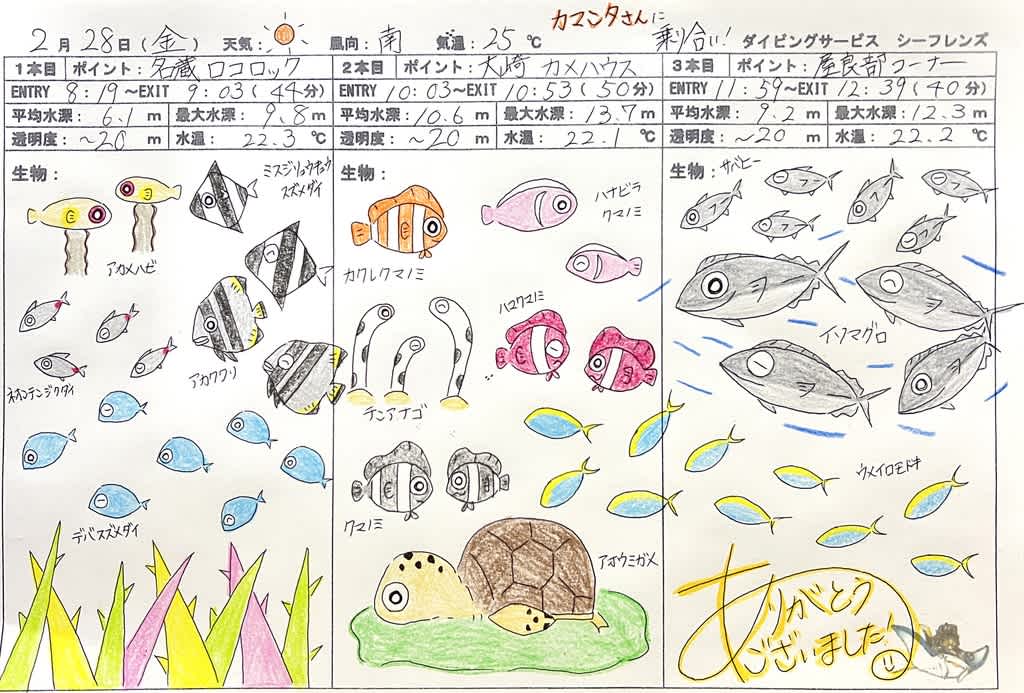 カマンタさんに
乗り合い!
2月28日(金) 天気: 風向:南 気温:25℃ ダイビングサービス シーフレンズ
1本目 ポイント:名蔵 ロコロック
ENTRY 8:19~EXIT 9:03(44分)
平均水深:6.1m 最大水深:9.8m
透明度:~20m 水温:22.3℃
生物:
ミスジリュウキュウ
スズメダイ
アカメハゼ
アカククリ
ネオンテンジクダイ
デバスズメダイ
2本目 ポイント:大崎 カメハウス
ENTRY 10:03~EXIT 10:53(50分)
平均水深:10.6m 最大水深:13.7m
透明度:~20m 水温:22.1℃
生物:
ハナビラ
クマノミ
カクレクマノミ
ハマクマノミ
チンアナゴ
クマノミ
アオウミガメ
3本目 ポイント:屋良部コーナー
ENTRY 11:59~EXIT 12:39(40分)
平均水深:9.2m 最大水深:12.3m
透明度:~20m 水温:22.2℃
生物:サバヒー
イソマグロ
ウメイロモドキ
ありがとう
ございました!